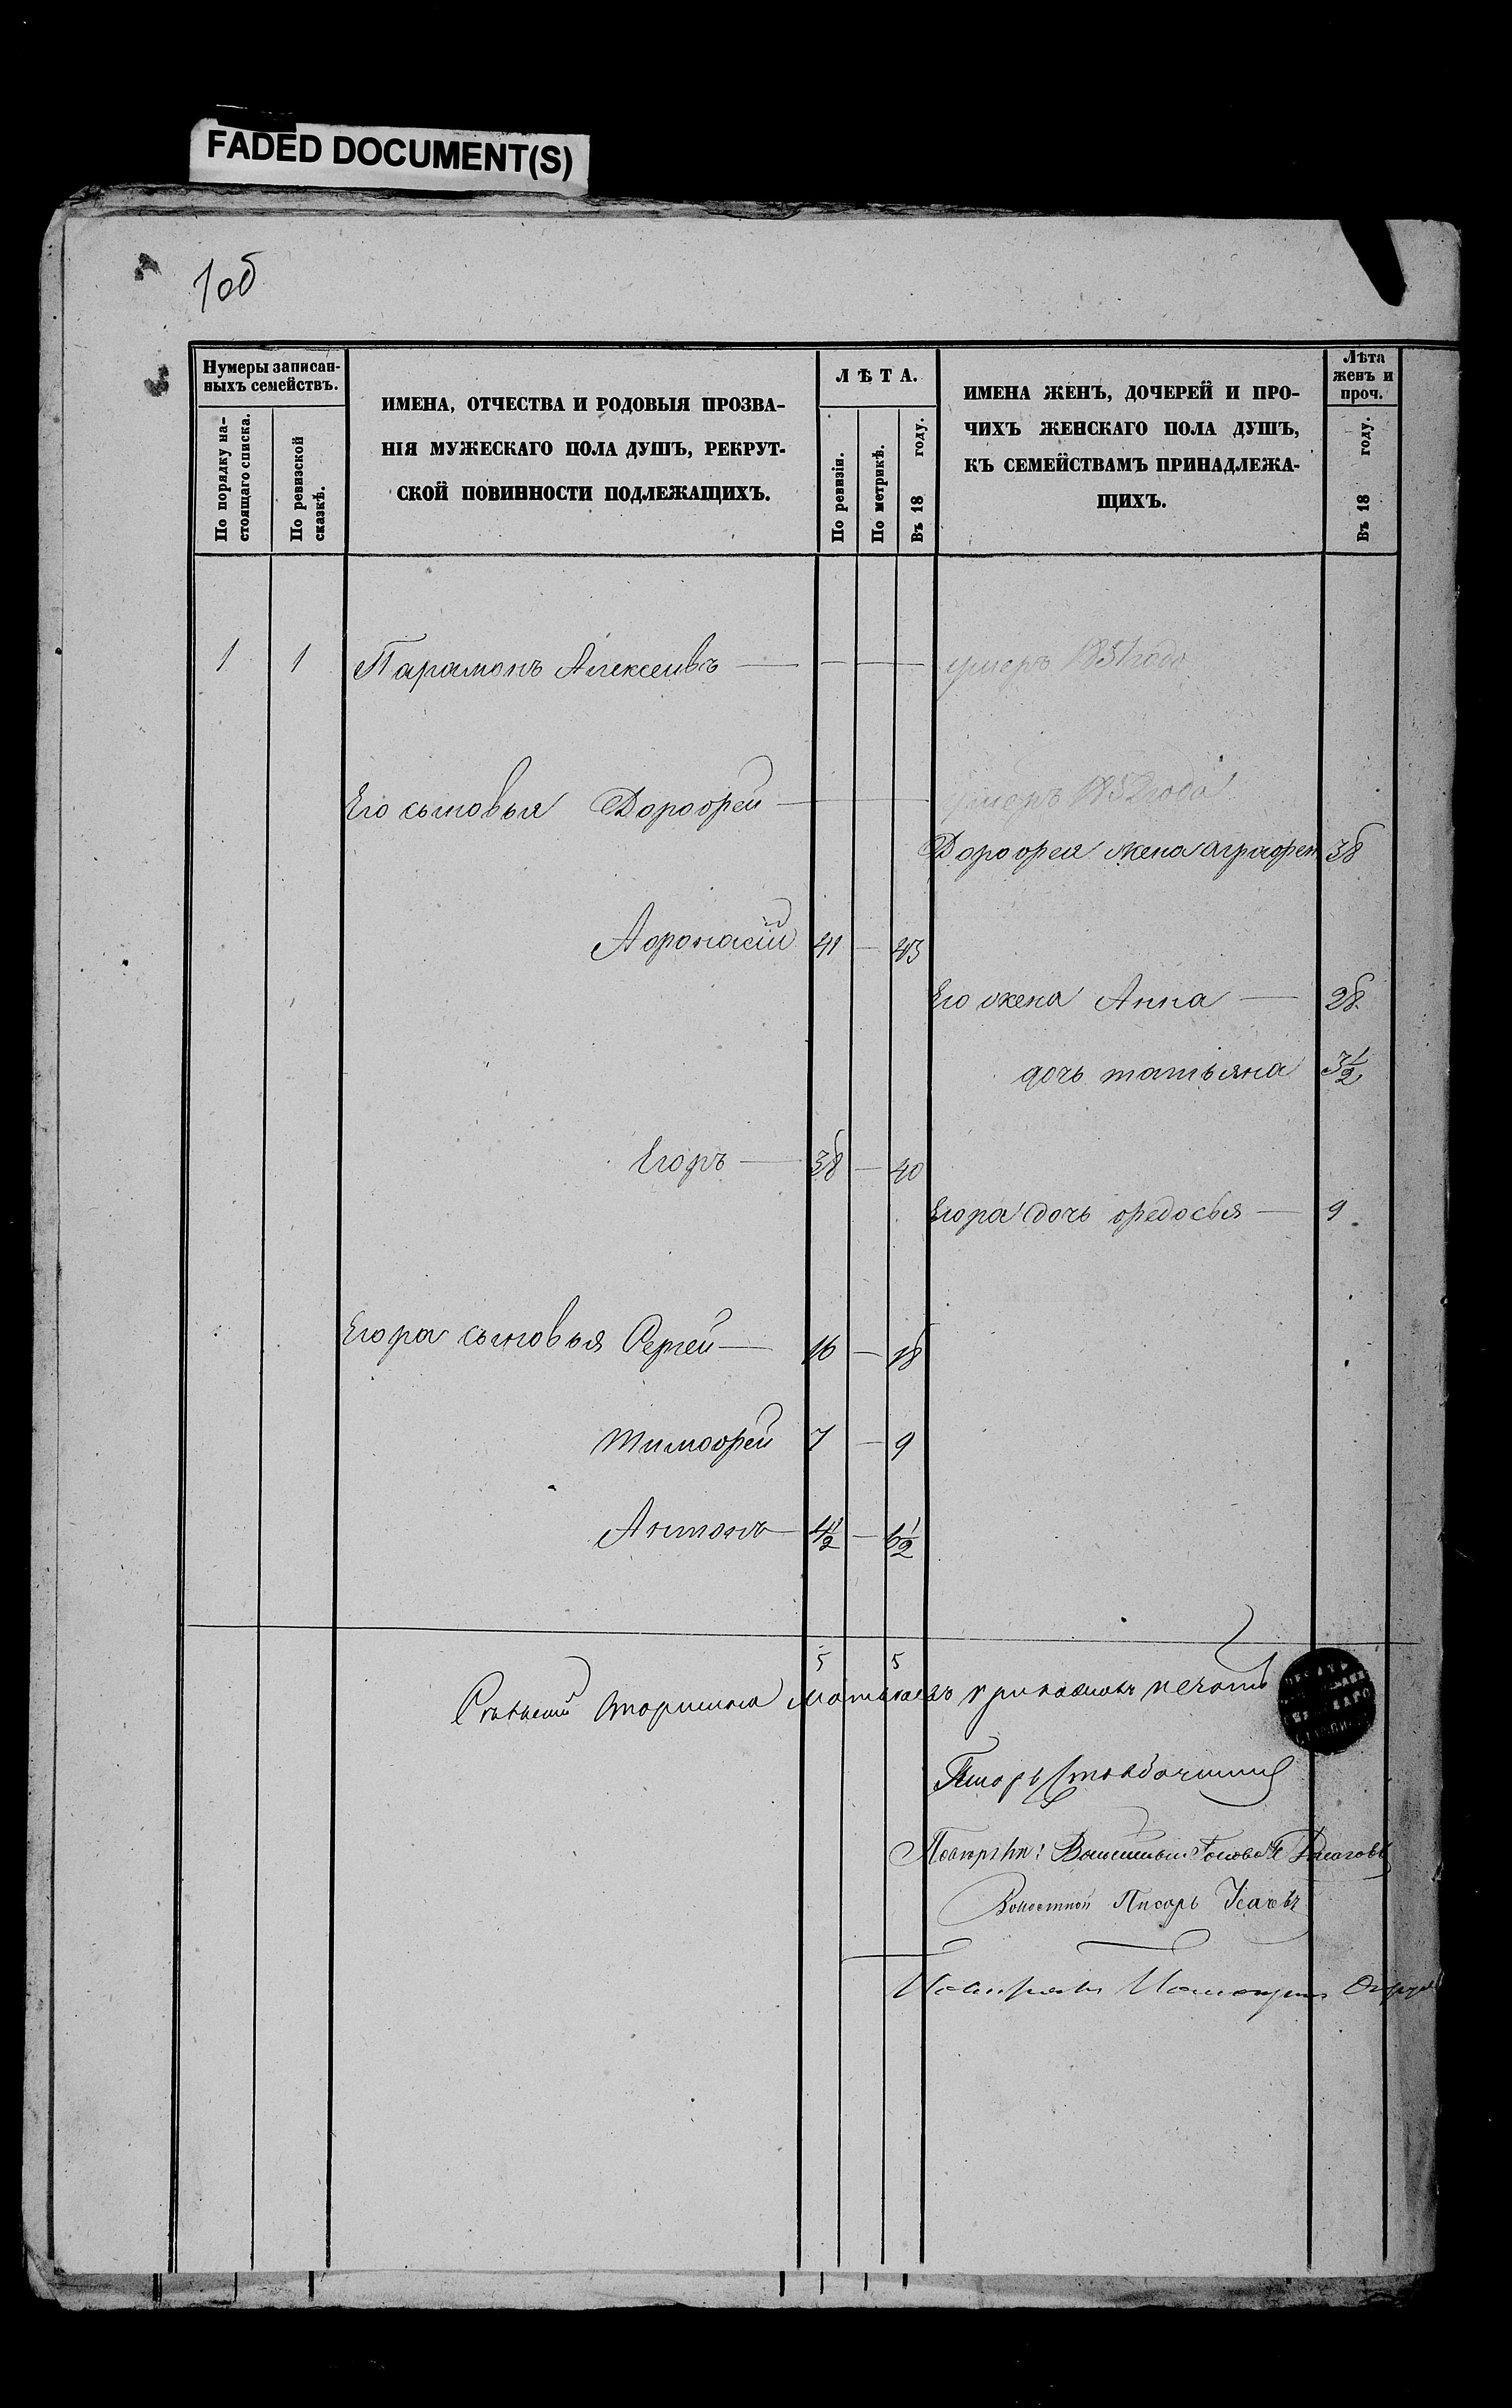 FADED DOCUMENT(S)
1об
Нумеры записан-
ныхъ семействъ.
По порядку на-
стоящаго списка.
По ревизской
сказкѣ.
ИМЕНА, ОТЧЕСТВА И РОДОВЫЯ ПРОЗВА-
НІЯ МУЖЕСКАГО ПОЛА ДУШЪ, РЕКРУТ-
СКОЙ ПОВИННОСТИ ПОДЛЕЖАЩИХЪ.
ЛѢТА.
По ревизіи.
По метрикѣ.
Въ 18 году.
ИМЕНА ЖЕНЪ, ДОЧЕРЕЙ И ПРО-
ЧИХЪ ЖЕНСКАГО ПОЛА ДУШЪ,
КЪ СЕМЕЙСТВАМЪ ПРИНАДЛЕЖА-
ЩИХЪ.
Лѣта
женъ и
проч.
Въ 18 году.
1 1 Парамонъ Алексеивъ — — — умеръ 1851 года
Его сыновья Дорофей — умеръ 1852 года
Дорофея жена аграфен 38
Афонасій 41 — 43
Его жена Анна — 28
дочь татьяна 3 1/2
Егоръ — 38 — 40
Егора дочь федосья — 9
Егора сыновья Сергей — 16 — 18
тимофей 7 — 9
Антонъ — 4 1/2 — 6 1/2
5 5
печать
Волостной Писарь Усачевъ